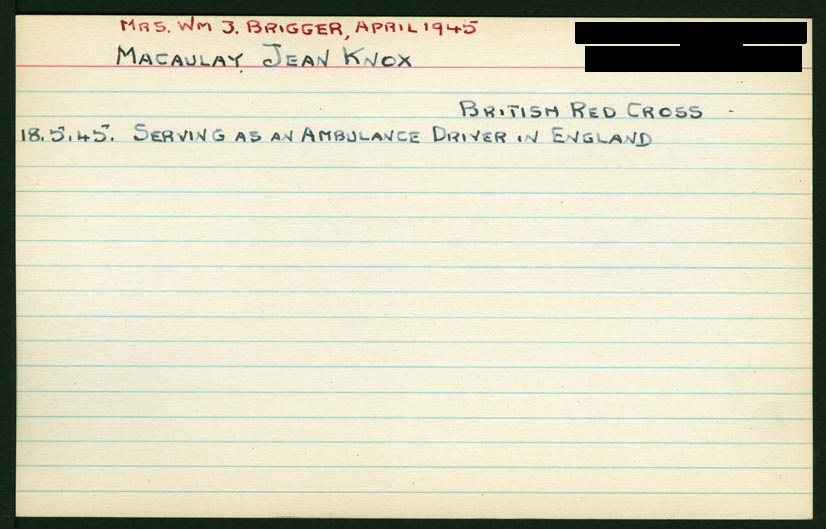 MRS. WM J. BRIGGER, APRIL 1945
MACAULAY, JEAN KNOX
BRITISH RED CROSS -
18.5.45. SERVING AS AN AMBULANCE DRIVER IN ENGLAND